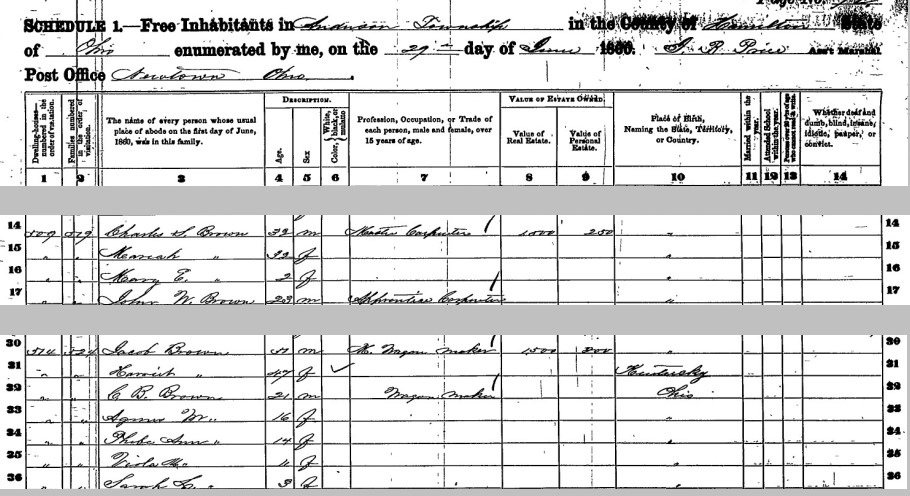 Page No.
SCHEDULE 1.—Free Inhabitants in Anderson Township in the County of Hamilton State
of Ohio enumerated by me, on the 29th day of June 1860. Ass't Marshal
Post Office Newtown Ohio.
Dwelling-houses—numbered in the order of visitation.
Families numbered in the order of visitation.
The name of every person whose usual place of abode on the first day of June, 1860, was in this family.
DESCRIPTION.
Age.
Sex
Color, White, black, or mulatto
Profession, Occupation, or Trade of each person, male and female, over 15 years of age.
VALUE OF ESTATE OWNED.
Value of Real Estate.
Value of Personal Estate.
Place of Birth, Naming the State, Territory, or Country.
Married within the year.
Attended School within the year.
Persons over 20 y'rs of age who cannot read & write.
Whether deaf and dumb, blind, insane, idiotic, pauper, or convict.
1 2 3 4 5 6 7 8 9 10 11 12 13 14
14 509 519 Charles S. Brown 32 m Master Carpenter 1500 250 " 14
15 " " Mariah " 32 f " 15
16 " " Mary E. " 2 f " 16
17 " " John W. Brown 23 m Apprentice Carpenter " 17
30 514 524 Jacob Brown 51 m M. Wagon maker 1500 300 " 30
31 " " Harriet " 47 f Kentucky 31
32 " " C B. Brown 21 m Wagon maker Ohio 32
33 " " Agness M. " 16 f " 33
34 " " Phebe Ann " 14 f " 34
35 " " Viola " 11 f " 35
36 " " Sarah " 3 f " 36